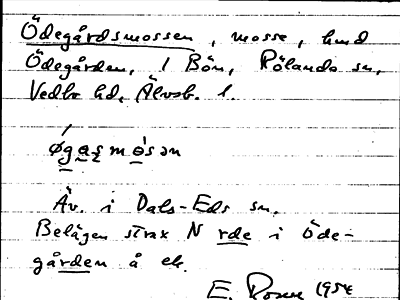 Ödegårdsmossen, mosse, hmd
Ödegården, 1 Bön, Rölanda sn,
Vedbo hd, Älvsb. l.
øgasmosən
Äv. i Dals-Eds sn.
Belägen strax N rde i Öde-
gården å ek.
E. Rosen 1954